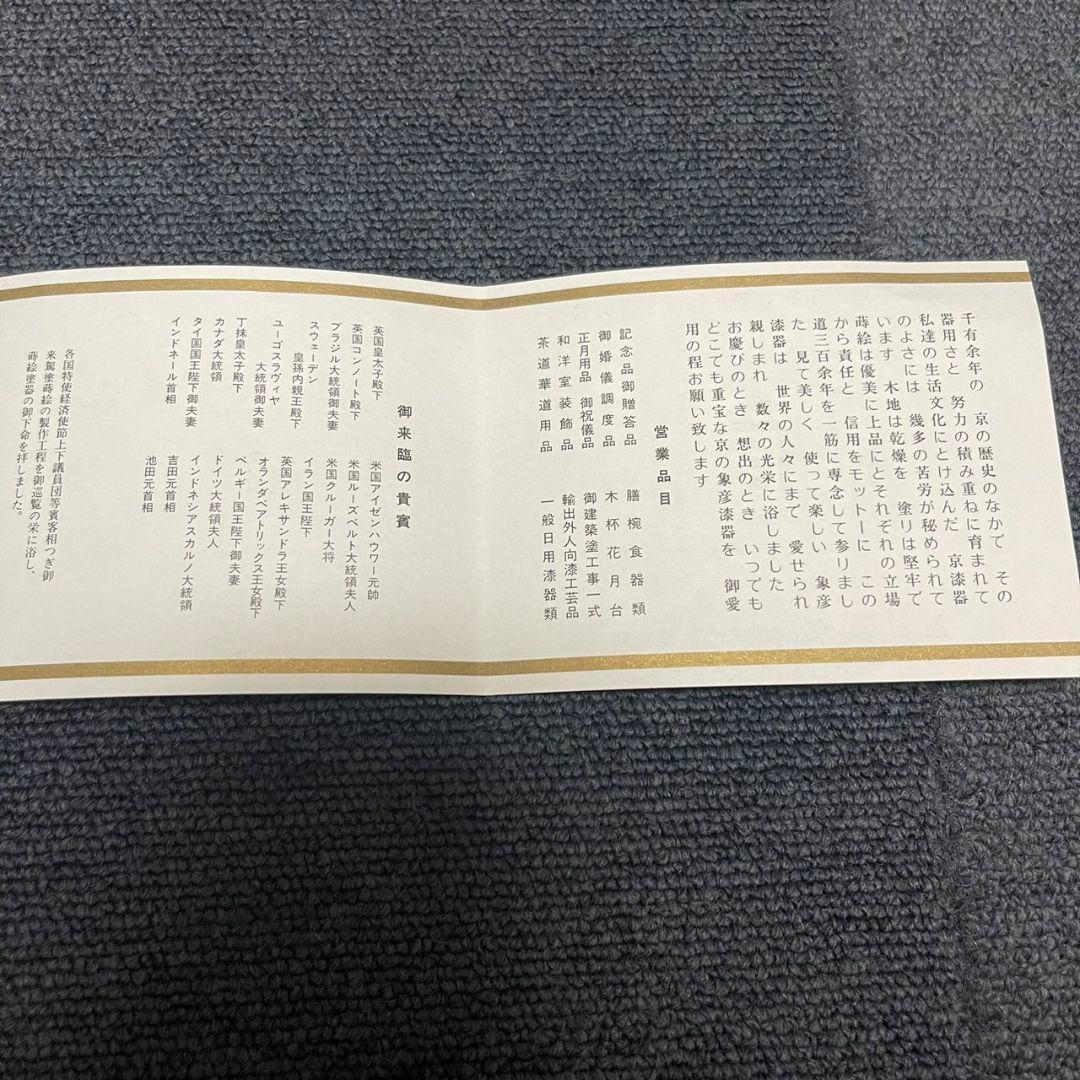 千有余年の 京の歴史のなかで その
器用さと 努力の積み重ねに育まれて
私達の生活文化にとけ込んだ 京漆器
のよさには 幾多の苦労が秘められて
います 木地は乾燥を 塗りは堅牢で
蒔絵は優美に上品にとそれぞれの立場
から責任と 信用をモットーに この
道三百余年を一筋に専念して参りまし
た 見て美しく 使って楽しい 象彦
漆器は 世界の人々にまで 愛せられ
親しまれ 数々の光栄に浴しました
お慶びのとき 想出のとき いつでも
どこでも重宝な京の象彦漆器を 御愛
用の程お願い致します
営業品目
記念品御贈答品
御婚儀調度品
正月用品 御祝儀品
和洋室装飾品
茶道華道用品
膳椀食器類
木杯花月台
御建築塗工事一式
輸出外人向漆工芸品
一般日用漆器類
御来臨の貴賓
英国皇太子殿下
英国コンノート殿下
ブラジル大統領御夫妻
スウェーデン
皇孫内親王殿下
ユーゴスラヴィヤ
大統領御夫妻
丁抹皇太子殿下
カナダ大統領
タイ国国王陛下御夫妻
インドネール首相
米国アイゼンハウワー元帥
米国ルーズベルト大統領夫人
米国クルーガー大将
イラン国王陛下
英国アレキサンドラ王女殿下
オランダベアトリックス王女殿下
ベルギー国王陛下御夫妻
ドイツ大統領夫人
インドネシアスカルノ大統領
吉田元首相
池田元首相
各国特使経済使節上下議員団等賓客相つぎ御
来駕塗蒔絵の製作工程を御巡覧の栄に浴し、
蒔絵塗器の御下命を拝しました。